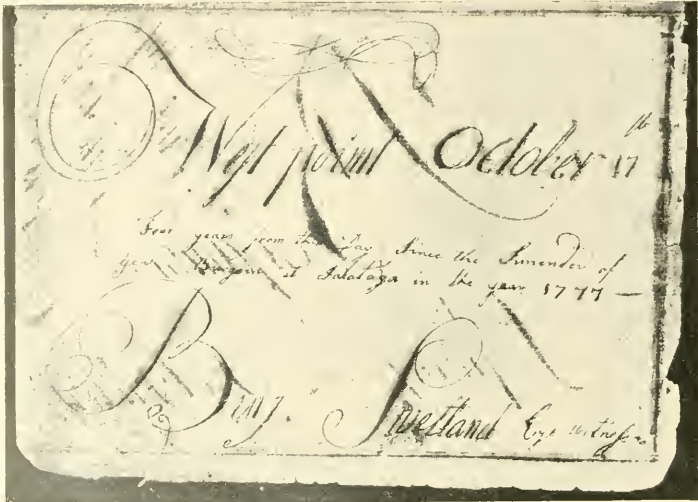 West point October 17th
Four years from this Day Since the Surrender of
Gen Burgoine at Saratoga in the year 1777 —
Benj. Swetland Eye witness